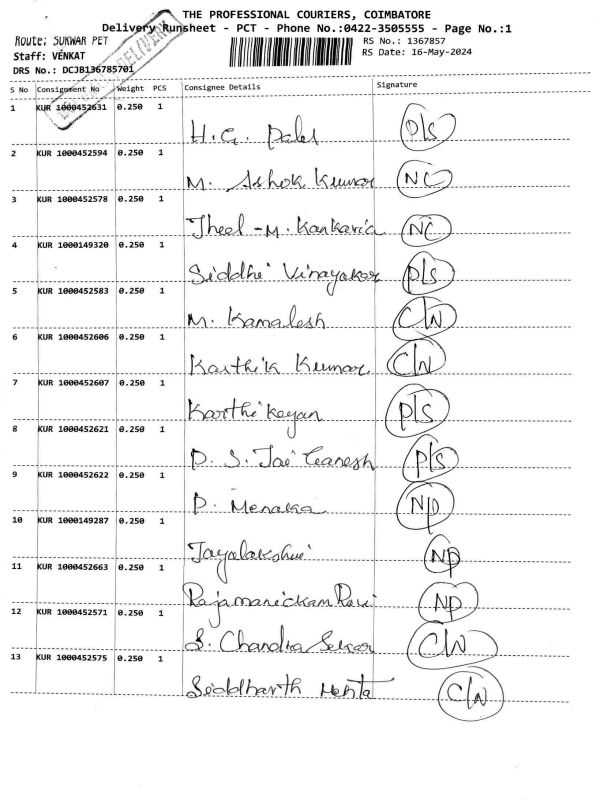 THE PROFESSIONAL COURIERS, COIMBATORE
Delivery Runsheet - PCT - Phone No.:0422-3505555 - Page No.:1
Route: SUKWAR PET
RS No.: 1367857
Staff: VENKAT
RS Date: 16-May-2024
DRS No.: DCJB136785701
S No Consignment No Weight PCS Consignee Details Signature
1 KUR 1000452631 0.250 1
H.G. P/S
2 KUR 1000452594 0.250 1
M. Ashok Kumar NC
3 KUR 1000452578 0.250 1
Jheel -M. Kankaria NC
4 KUR 1000149320 0.250 1
Siddhi Vinayakar P/S
5 KUR 1000452583 0.250 1
M. Kamalesh C/N
6 KUR 1000452606 0.250 1
Karthik Kumar C/N
7 KUR 1000452607 0.250 1
Karthikeyan P/S
8 KUR 1000452621 0.250 1
P. S. Jai Ganesh P/S
9 KUR 1000452622 0.250 1
P. Menaka NP
10 KUR 1000149287 0.250 1
Jayalakshmi NP
11 KUR 1000452663 0.250 1
Rajamanickam Ravi NP
12 KUR 1000452571 0.250 1
S. Chandra Sekar C/N
13 KUR 1000452575 0.250 1
Siddharth Mehta C/N